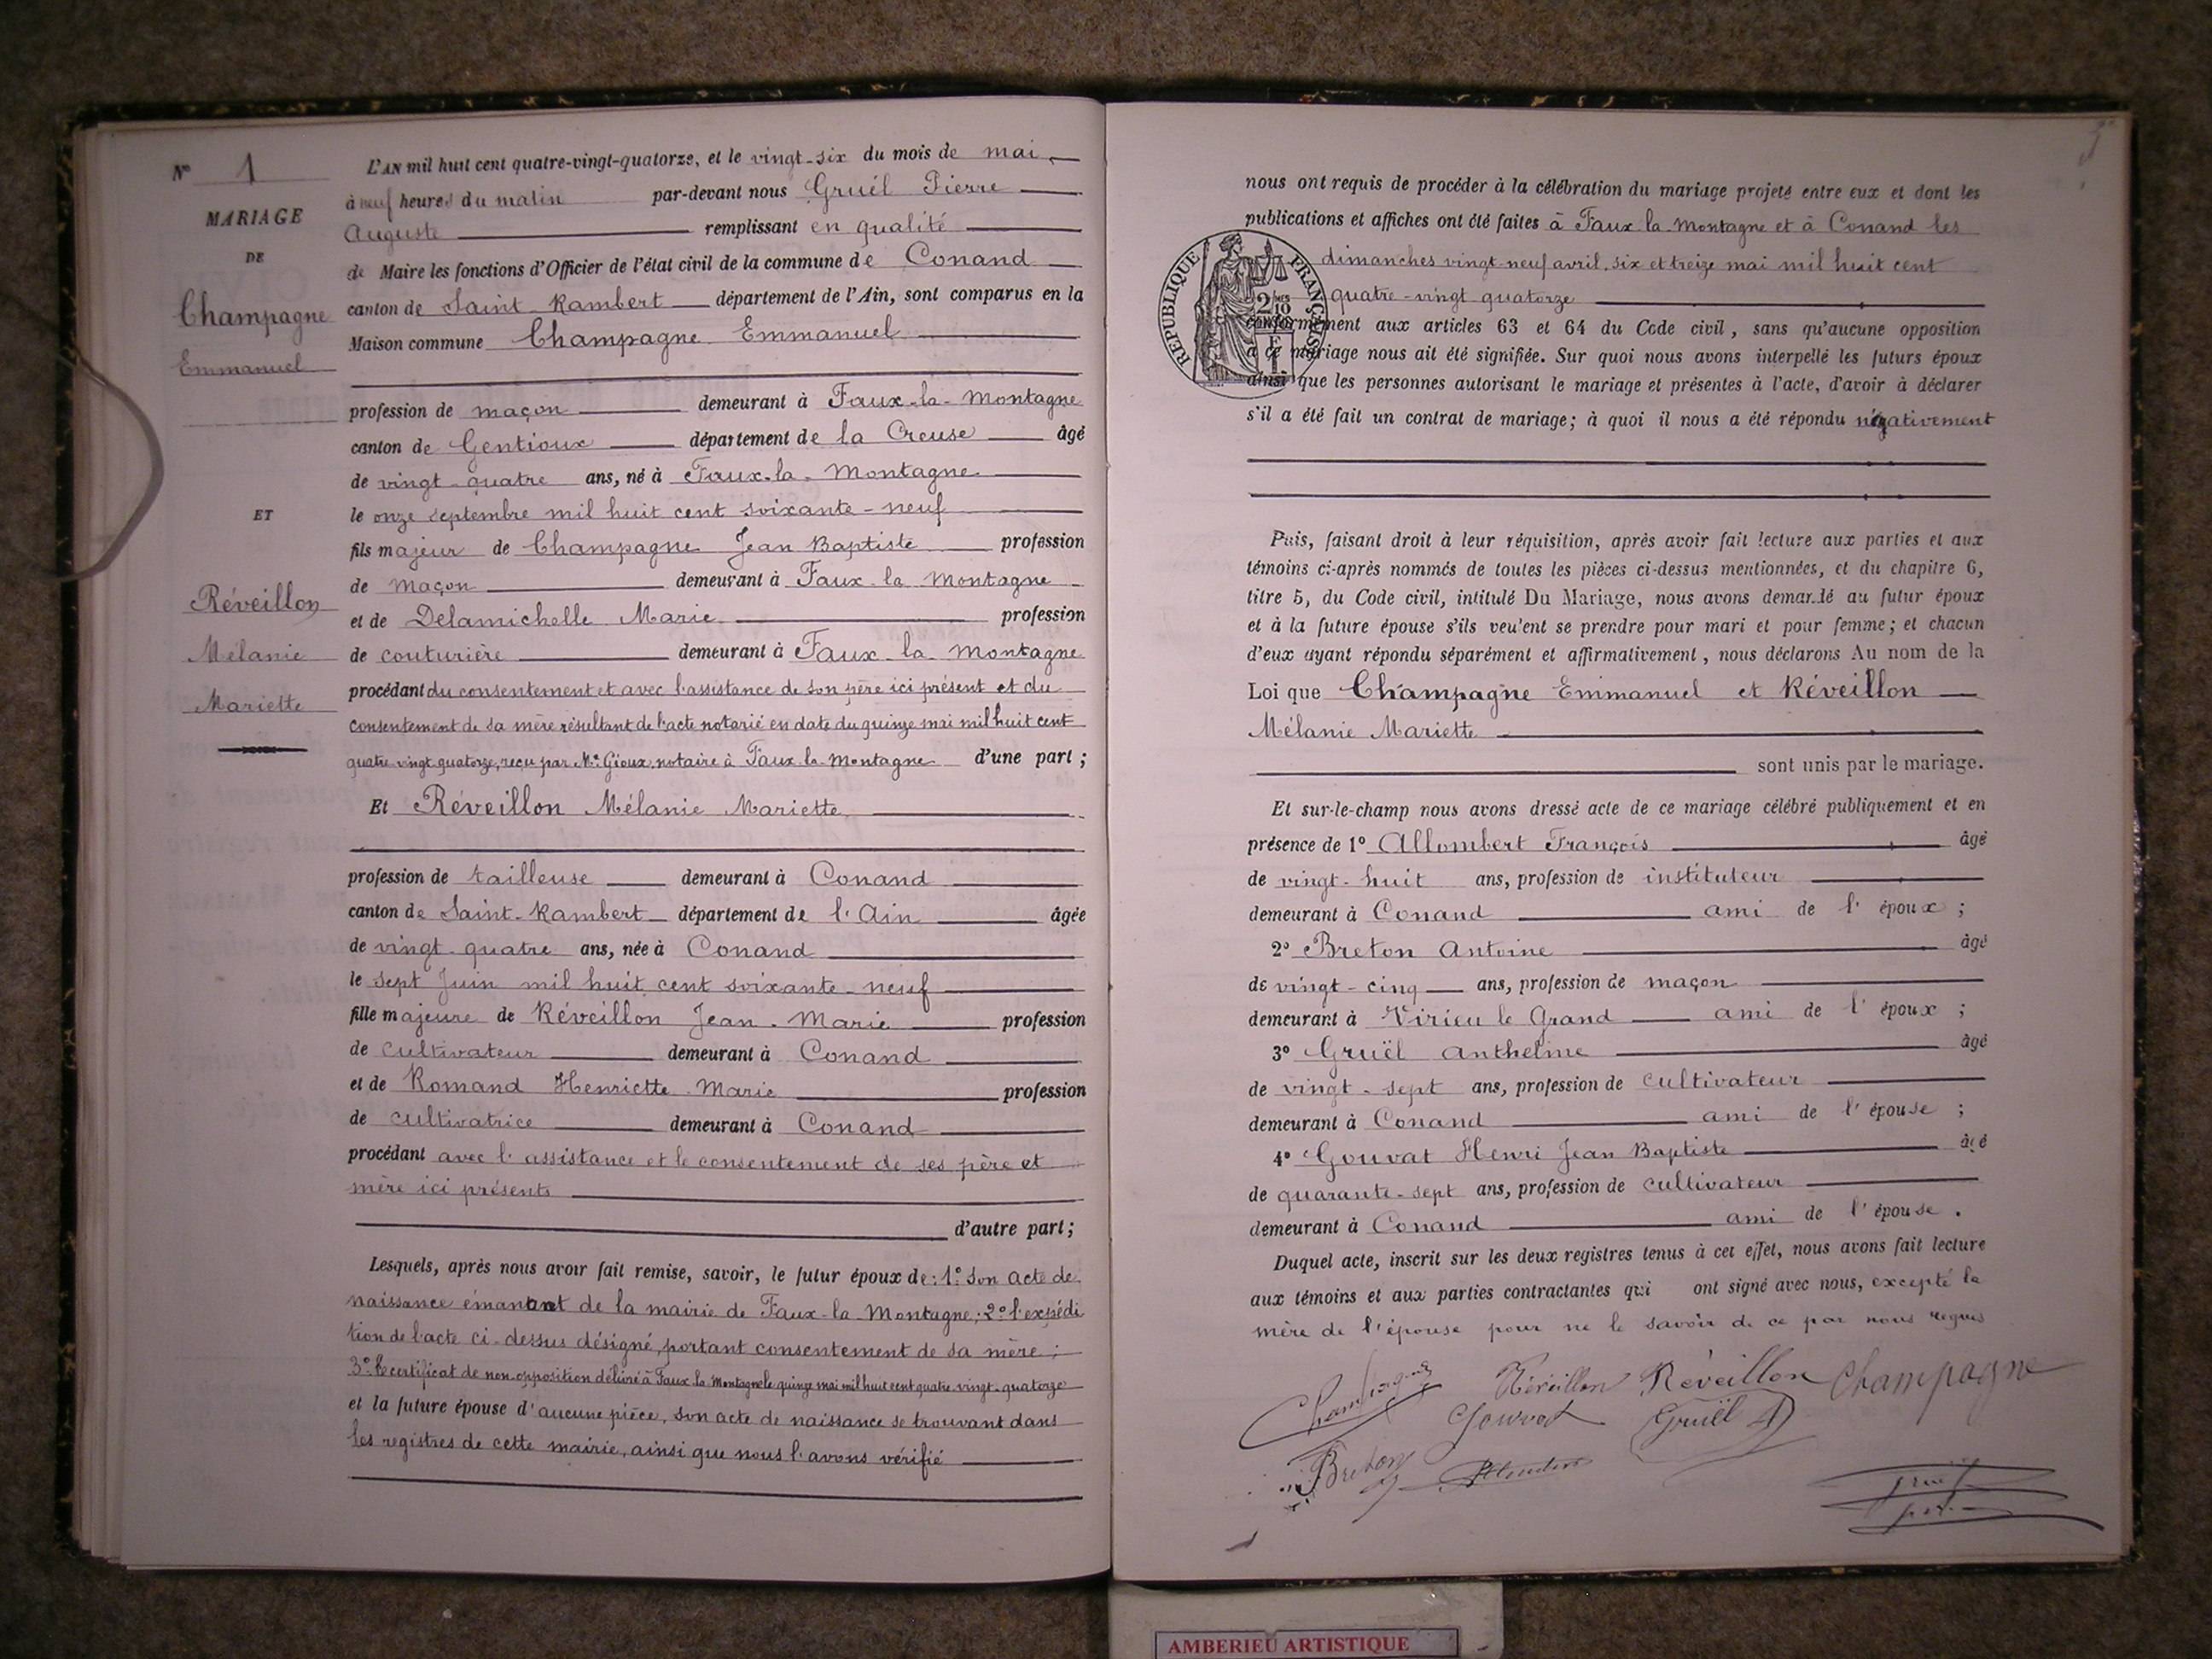 N° 1
MARIAGE
DE
Champagne
Emmanuel
ET
Réveillon
Mélanie
Mariette
L'AN mil huit cent quatre-vingt-quatorze, et le vingt-six du mois de mai
à neuf heures du matin par-devant nous Gruël Pierre
Auguste remplissant en qualité
de Maire les fonctions d'Officier de l'état civil de la commune de Conand
canton de Saint-Rambert département de l'Ain, sont comparus en la
Maison commune Champagne Emmanuel
profession de maçon demeurant à Faux-la-Montagne
canton de Gentioux département de la Creuse âgé
de vingt-quatre ans, né à Faux-la-Montagne
le onze septembre mil huit cent soixante-neuf
fils majeur de Champagne Jean Baptiste profession
de maçon demeurant à Faux-la-Montagne
et de Delamichelle Marie profession
de couturière demeurant à Faux-la-Montagne
procédant du consentement et avec l'assistance de son père ici présent et du
consentement de sa mère résultant de l'acte notarié en date du quinze mai mil huit cent
quatre vingt quatorze, reçu par Me Gioux, notaire à Faux-la-Montagne d'une part ;
Et Réveillon Mélanie Mariette
profession de tailleuse demeurant à Conand
canton de Saint-Rambert département de l'Ain âgée
de vingt-quatre ans, née à Conand
le sept Juin mil huit cent soixante-neuf
fille majeure de Réveillon Jean-Marie profession
de cultivateur demeurant à Conand
et de Romand Henriette Marie profession
de cultivatrice demeurant à Conand
procédant avec l'assistance et le consentement de ses père et
mère ici présents
d'autre part ;
Lesquels, après nous avoir fait remise, savoir, le futur époux de : 1° son acte de
naissance émanant de la mairie de Faux-la-Montagne ; 2° l'expédi
tion de l'acte ci-dessus désigné, portant consentement de sa mère ;
3° Le certificat de non-opposition délivré à Faux la Montagne le quinze mai mil huit cent quatre-vingt-quatorze
et la future épouse d'aucune pièce, son acte de naissance se trouvant dans
les registres de cette mairie, ainsi que nous l'avons vérifié
nous ont requis de procéder à la célébration du mariage projeté entre eux et dont les
publications et affiches ont été faites à Faux la Montagne et à Conand les
dimanches vingt-neuf avril, six et treize mai mil huit cent
quatre-vingt quatorze
REPUBLIQUE FRANÇAISE
2/10
conformément aux articles 63 et 64 du Code civil, sans qu'aucune opposition
à ce mariage nous ait été signifiée. Sur quoi nous avons interpellé les futurs époux
ainsi que les personnes autorisant le mariage et présentes à l'acte, d'avoir à déclarer
s'il a été fait un contrat de mariage ; à quoi il nous a été répondu négativement
Puis, faisant droit à leur réquisition, après avoir fait lecture aux parties et aux
témoins ci-après nommés de toutes les pièces ci-dessus mentionnées, et du chapitre 6,
titre 5, du Code civil, intitulé Du Mariage, nous avons demandé au futur époux
et à la future épouse s'ils veulent se prendre pour mari et pour femme ; et chacun
d'eux ayant répondu séparément et affirmativement, nous déclarons Au nom de la
Loi que Champagne Emmanuel et Réveillon
Mélanie Mariette
sont unis par le mariage.
Et sur-le-champ nous avons dressé acte de ce mariage célébré publiquement et en
présence de 1° Allombert François âgé
de vingt-huit ans, profession de instituteur
demeurant à Conand ami de l'époux ;
2° Breton Antoine âgé
de vingt-cinq ans, profession de maçon
demeurant à Virieu le Grand ami de l'époux ;
3° Gruël Anthelme âgé
de vingt-sept ans, profession de cultivateur
demeurant à Conand ami de l'épouse ;
4° Gouvat Henri Jean Baptiste âgé
de quarante-sept ans, profession de cultivateur
demeurant à Conand ami de l'épouse.
Duquel acte, inscrit sur les deux registres tenus à cet effet, nous avons fait lecture
aux témoins et aux parties contractantes qui ont signé avec nous, excepté la
mère de l'épouse pour ne le savoir de ce par nous requis
Champagne Réveillon Réveillon Champagne
Gouvat Gruël A
Breton
Gruël
AMBERIEU ARTISTIQUE